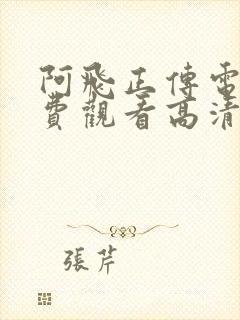 阿飛正傳電
費觀看高清
張芹